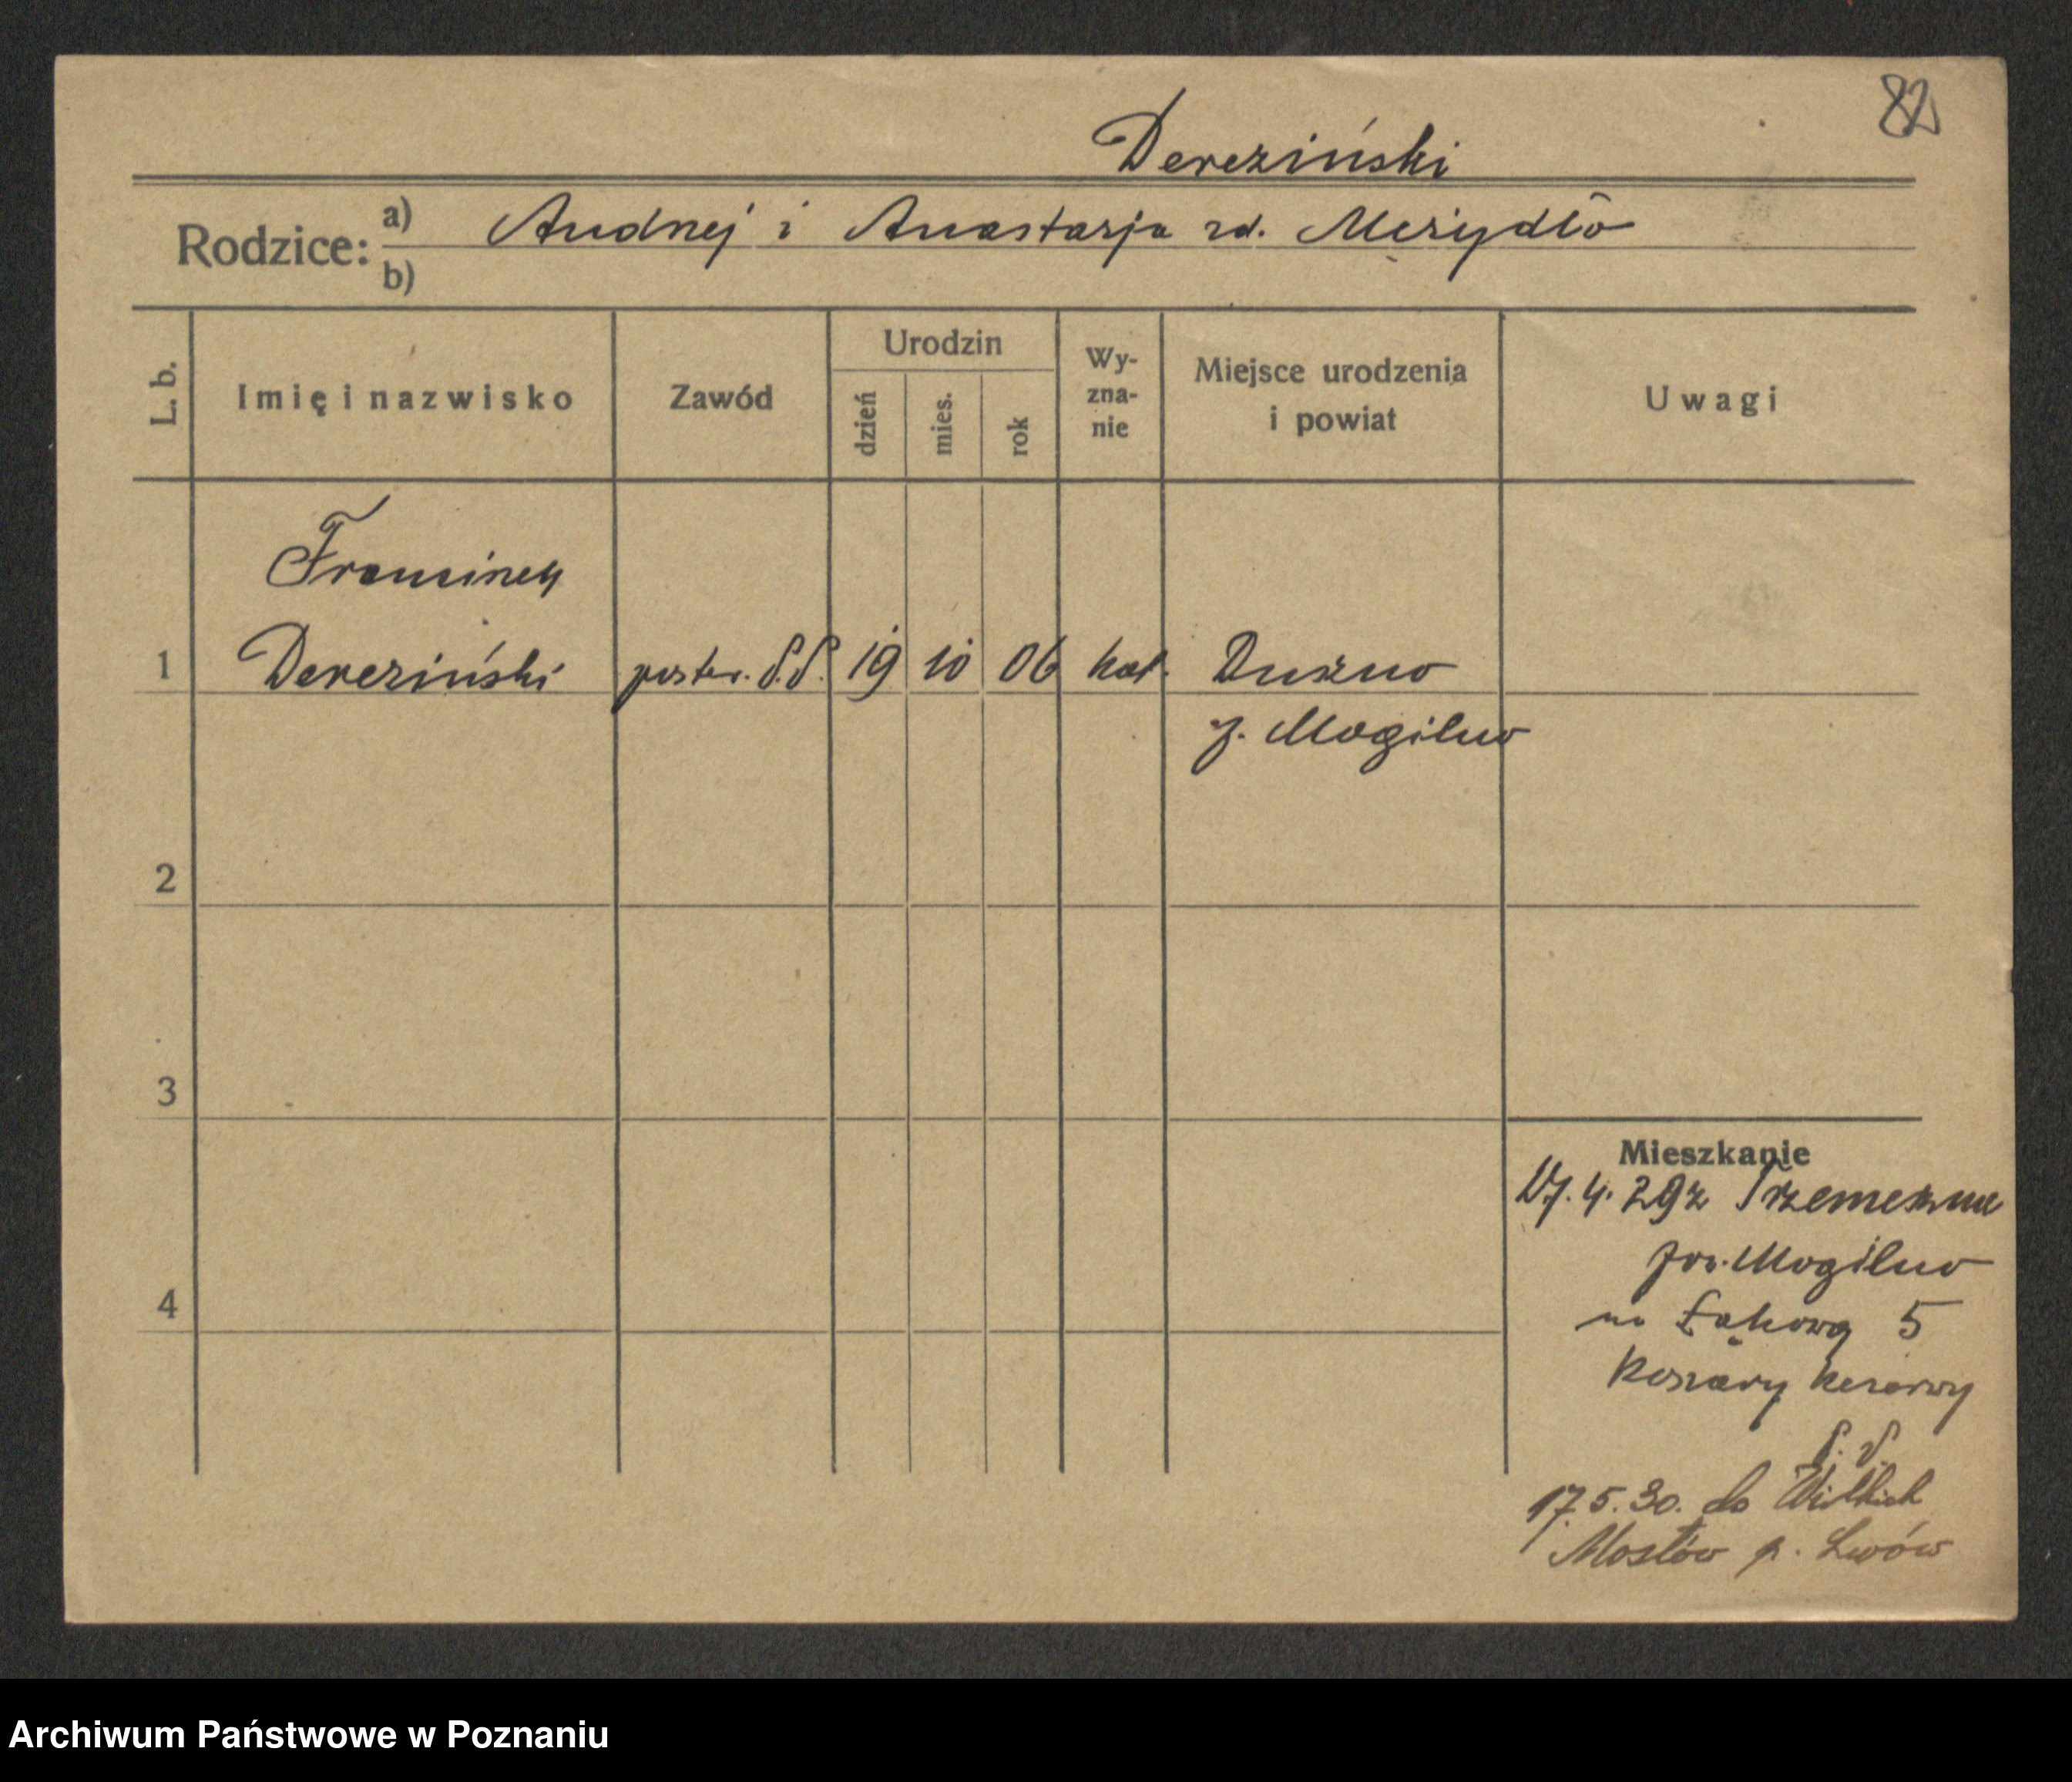 82
Dereziński
Rodzice: a) Andrzej i Anastazja zd. Meżydło
b)
L. b.
Imię i nazwisko
Zawód
Urodzin
dzień
mies.
rok
Wy-
zna-
nie
Miejsce urodzenia
i powiat
Uwagi
Franciszek
1 Dereziński poster. P.P. 19 10 06 kat. Duszno
p. Mogilno
2
3
4
Mieszkanie
17.4.29 z Trzemeszna
pow. Mogilno
na Łąkową 5
Koszary rezerwy
P.P.
17.5.30. do Wielkich
Mostów p. Lwów
Archiwum Państwowe w Poznaniu